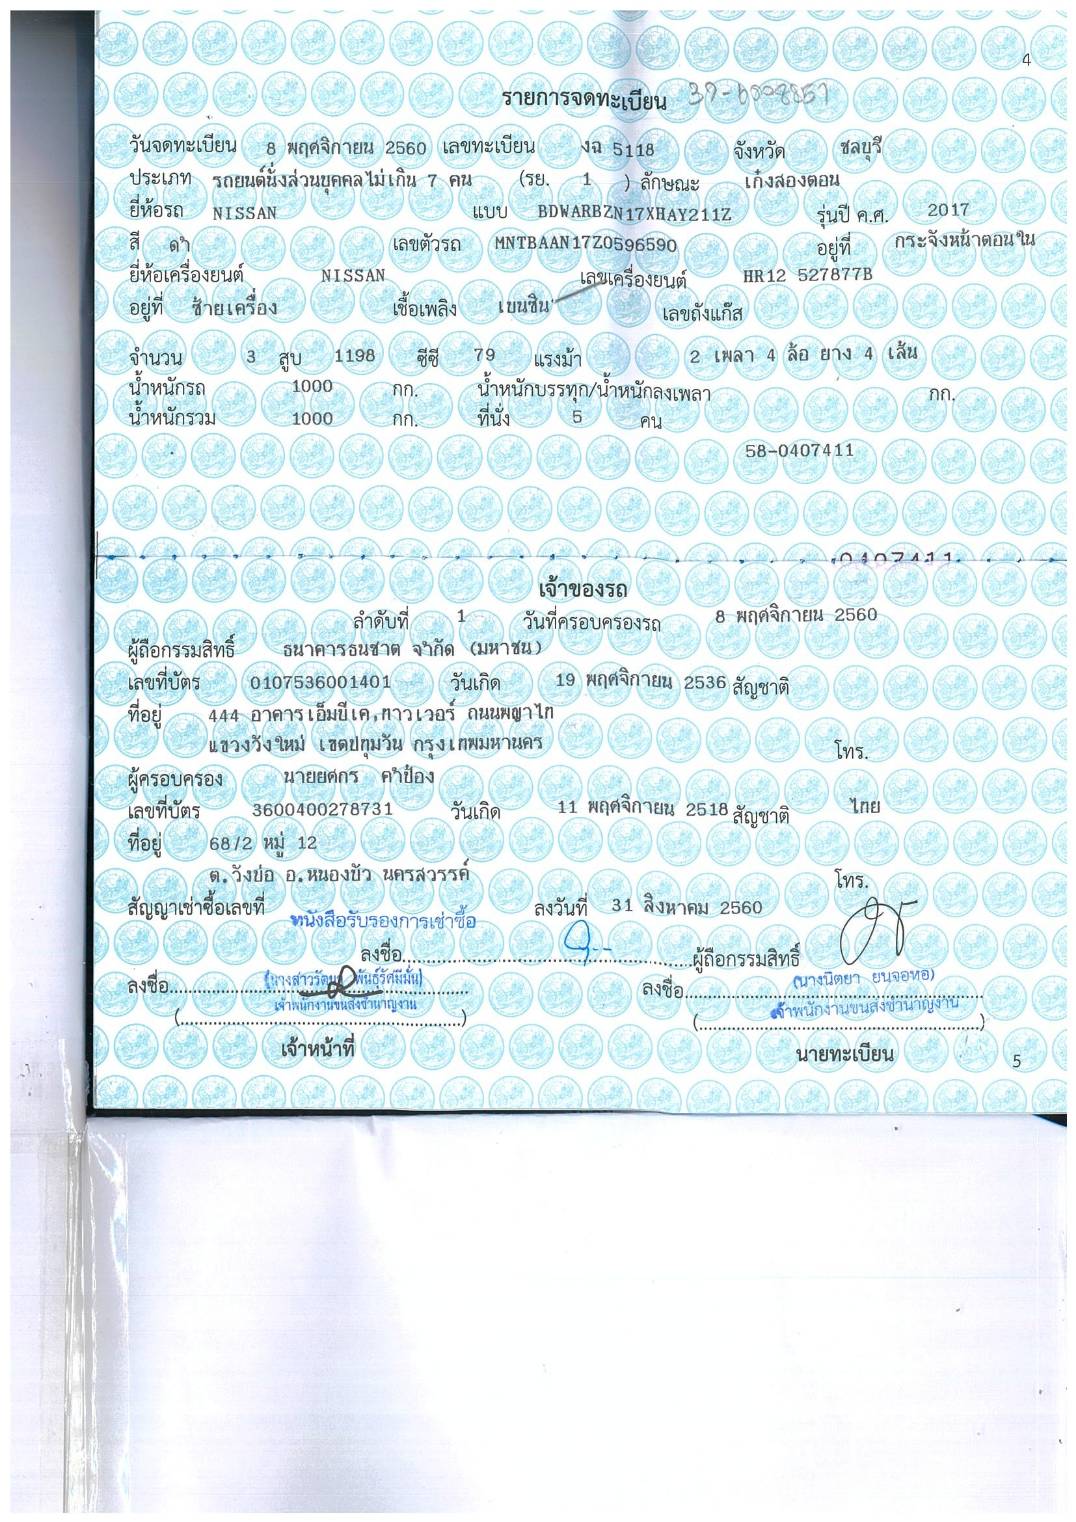 4
รายการจดทะเบียน
วันจดทะเบียน 8 พฤศจิกายน 2560 เลขทะเบียน งฉ 5118 จังหวัด ชลบุรี
ประเภท รถยนต์นั่งส่วนบุคคลไม่เกิน 7 คน (รย. 1 ) ลักษณะ เก๋งสองตอน
ยี่ห้อรถ NISSAN แบบ BDWARBZN17XHAY211Z รุ่นปี ค.ศ. 2017
สี ดำ เลขตัวรถ MNTBAAN17Z0596590 อยู่ที่ กระจังหน้าตอนใน
ยี่ห้อเครื่องยนต์ NISSAN เลขเครื่องยนต์ HR12 527877B
อยู่ที่ ซ้ายเครื่อง เชื้อเพลิง เบนซิน เลขถังแก๊ส
จำนวน 3 สูบ 1198 ซีซี 79 แรงม้า 2 เพลา 4 ล้อ ยาง 4 เส้น
น้ำหนักรถ 1000 กก. น้ำหนักบรรทุก/น้ำหนักลงเพลา กก.
น้ำหนักรวม 1000 กก. ที่นั่ง 5 คน
58-0407411
0407411
เจ้าของรถ
ลำดับที่ 1 วันที่ครอบครองรถ 8 พฤศจิกายน 2560
ผู้ถือกรรมสิทธิ์ ธนาคารธนชาต จำกัด (มหาชน)
เลขที่บัตร 0107536001401 วันเกิด 19 พฤศจิกายน 2536 สัญชาติ
ที่อยู่ 444 อาคารเอ็มบีเค,ทาวเวอร์ ถนนพญาไท
แขวงวังใหม่ เขตปทุมวัน กรุงเทพมหานคร โทร.
ผู้ครอบครอง นายยศกร คำป้อง
เลขที่บัตร 3600400278731 วันเกิด 11 พฤศจิกายน 2518 สัญชาติ ไทย
ที่อยู่ 68/2 หมู่ 12
ต.วังบ่อ อ.หนองบัว นครสวรรค์ โทร.
สัญญาเช่าซื้อเลขที่ หนังสือรับรองการเช่าซื้อ ลงวันที่ 31 สิงหาคม 2560
ลงชื่อ ผู้ถือกรรมสิทธิ์
ลงชื่อ ลงชื่อ (นางนิตยา ยนจอหอ)
เจ้าพนักงานขนส่งชำนาญงาน เจ้าพนักงานขนส่งชำนาญงาน
เจ้าหน้าที่ นายทะเบียน
5